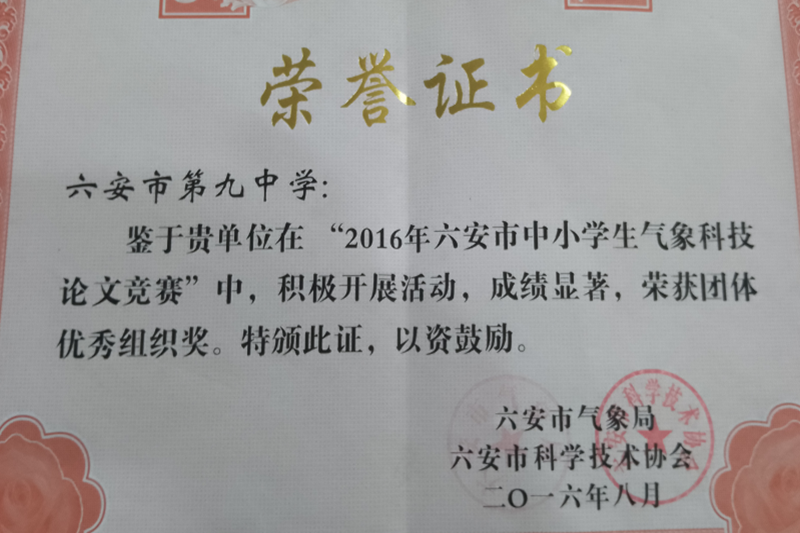 荣誉证书
六安市第九中学：
鉴于贵单位在“2016年六安市中小学生气象科技
论文竞赛”中，积极开展活动，成绩显著，荣获团体
优秀组织奖。特颁此证，以资鼓励。
六安市气象局
六安市科学技术协会
二〇一六年八月